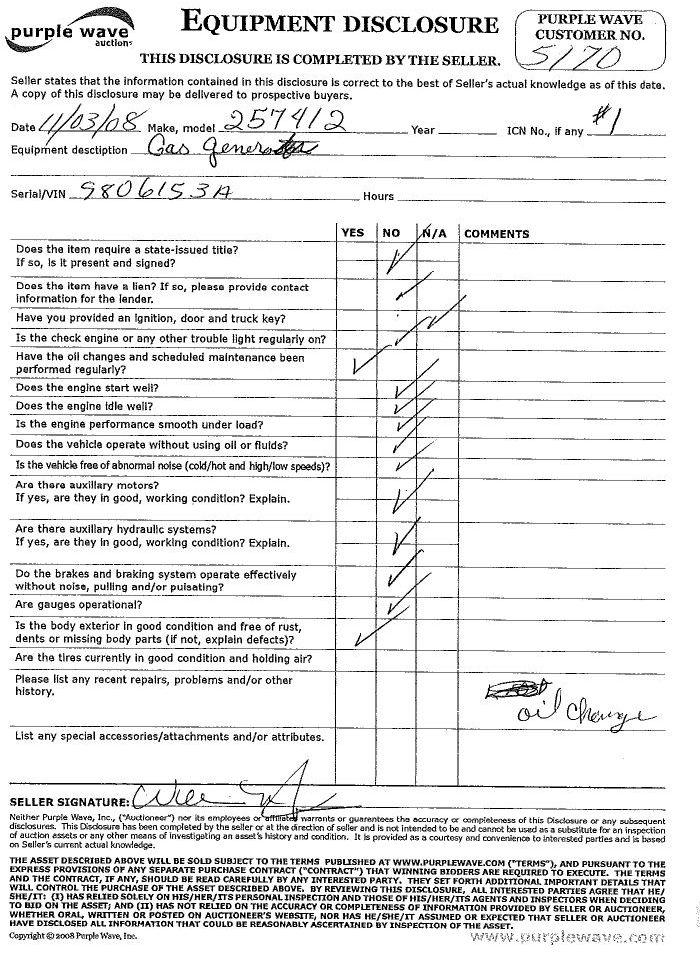 purple wave
auctions
EQUIPMENT DISCLOSURE
THIS DISCLOSURE IS COMPLETED BY THE SELLER.
PURPLE WAVE
CUSTOMER NO.
5170
Seller states that the information contained in this disclosure is correct to the best of Seller's actual knowledge as of this date.
A copy of this disclosure may be delivered to prospective buyers.
Date 11/03/08 Make, model 257412 Year ICN No., if any #1
Equipment desctiption Gas generator
Serial/VIN 9806153A Hours
YES NO N/A COMMENTS
Does the item require a state-issued title?
If so, is it present and signed?
Does the item have a lien? If so, please provide contact
information for the lender.
Have you provided an ignition, door and truck key?
Is the check engine or any other trouble light regularly on?
Have the oil changes and scheduled maintenance been
performed regularly?
Does the engine start well?
Does the engine idle well?
Is the engine performance smooth under load?
Does the vehicle operate without using oil or fluids?
Is the vehicle free of abnormal noise (cold/hot and high/low speeds)?
Are there auxillary motors?
If yes, are they in good, working condition? Explain.
Are there auxillary hydraulic systems?
If yes, are they in good, working condition? Explain.
Do the brakes and braking system operate effectively
without noise, pulling and/or pulsating?
Are gauges operational?
Is the body exterior in good condition and free of rust,
dents or missing body parts (if not, explain defects)?
Are the tires currently in good condition and holding air?
Please list any recent repairs, problems and/or other
history.
oil change
List any special accessories/attachments and/or attributes.
SELLER SIGNATURE:
Neither Purple Wave, Inc., ("Auctioneer") nor its employees or affiliates warrants or guarantees the accuracy or completeness of this Disclosure or any subsequent
disclosures. This Disclosure has been completed by the seller or at the direction of seller and is not intended to be and cannot be used as a substitute for an inspection
of auction assets or any other means of investigating an asset's history and condition. It is provided as a courtesy and convenience to interested parties and is based
on Seller's current actual knowledge.
THE ASSET DESCRIBED ABOVE WILL BE SOLD SUBJECT TO THE TERMS PUBLISHED AT WWW.PURPLEWAVE.COM ("TERMS"), AND PURSUANT TO THE
EXPRESS PROVISIONS OF ANY SEPARATE PURCHASE CONTRACT ("CONTRACT") THAT WINNING BIDDERS ARE REQUIRED TO EXECUTE. THE TERMS
AND THE CONTRACT, IF ANY, SHOULD BE READ CAREFULLY BY ANY INTERESTED PARTY. THEY SET FORTH ADDITIONAL IMPORTANT DETAILS THAT
WILL CONTROL THE PURCHASE OF THE ASSET DESCRIBED ABOVE. BY REVIEWING THIS DISCLOSURE, ALL INTERESTED PARTIES AGREE THAT HE/
SHE/IT: (I) HAS RELIED SOLELY ON HIS/HER/ITS PERSONAL INSPECTION AND THOSE OF HIS/HER/ITS AGENTS AND INSPECTORS WHEN DECIDING
TO BID ON THE ASSET; AND (II) HAS NOT RELIED ON THE ACCURACY OR COMPLETENESS OF INFORMATION PROVIDED BY SELLER OR AUCTIONEER,
WHETHER ORAL, WRITTEN OR POSTED ON AUCTIONEER'S WEBSITE, NOR HAS HE/SHE/IT ASSUMED OR EXPECTED THAT SELLER OR AUCTIONEER
HAVE DISCLOSED ALL INFORMATION THAT COULD BE REASONABLY ASCERTAINED BY INSPECTION OF THE ASSET.
Copyright © 2008 Purple Wave, Inc.
www.purplewave.com